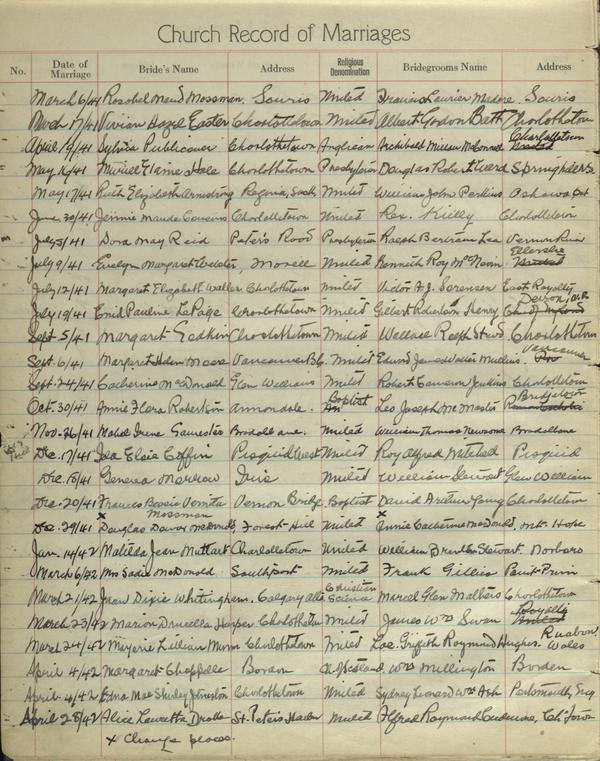 Church Record of Marriages
No. Date of Marriage Bride's Name Address Religious Denomination Bridegrooms Name Address
March 6/41 Rosebel Maud Mossman. Souris United Francis Laurier Souris
March 17/41 Vivian Hazel Easter Charlottetown United Albert Gordon Bath Charlottetown
April 9/41 Sylvia Publicover Charlottetown Anglican Archibald Millar McDonald Charlottetown
May 14/41 Muriel Elaine Hale Charlottetown Presbyterian Douglas Robert Springhill N.S.
May 17/41 Ruth Elizabeth Armstrong Regina, Sask United William John Perkins Oshawa Ont
June 30/41 Jennie Maude Cousins Charlottetown United Rex. Reilly Charlottetown
July 5/41 Dora May Reid Peter's Road Presbyterian Ralph Bertram Lea Vernon River
July 9/41 Evelyn Margaret Webster, Morell United Kenneth Roy Ellerslie
July 12/41 Margaret Elizabeth Waller Charlottetown United Victor A.J. Sorensen East Royalty
July 19/41 Enid Pauline LePage Charlottetown United Gilbert Robertson Henry Devon, N.B.
Sept. 5/41 Margaret Godkin Charlottetown United Wallace Ralph Charlottetown
Sept. 6/41 Margaret Helen Moore Vancouver B.C. United Edwin James Mullins Vancouver
Sept. 24/41 Catherine McDonald Glen William United Robert Cameron Jenkins Charlottetown
Oct. 30/41 Annie Flora Robertson Annandale. Baptist Leo Joseph McMaster Bridgetown
Nov. 26/41 Mabel Irene Bradalbane. United William Thomas Newsome Bradalbane
Dec. 17/41 Ida Elsie Coffin Pisquid West United Roy Alfred Mitchell Pisquid
Dec. 18/41 Geneva Iris United William Stewart Glen William
Dec. 20/41 Frances Bessie Vernita Mossman Vernon Bridge Baptist David Arthur Young Charlottetown
Dec. 29/41 x Douglas McDonald, Forest Hill United x Annie Catherine McDonald. Mt. Hope
Jan. 14/42 Matilda Jean Muttart Charlottetown United William Stewart. Norboro
March 6/42 Mrs Sadie McDonald Southport United Frank Gillis Point Prim
March 21/42 Jean Dixie Whitingham. Calgary Alta Christian Science Marcel Glen Mathers Charlottetown
March 23/42 Marion Druscilla Harper Charlottetown United James Wm Swan Royalty
March 24/42 Marjorie Lillian Munn Charlottetown United Griffith Raymond Hughes. Ruabon, Wales
April 4/42 Margaret Chappelle Borden Wm Millington Borden
April 4/42 Edna Mae Shirley Johnston Charlottetown United Sydney Leonard Wm Ash Portsmouth, Eng
April 28/42 Alice Lauretta St. Peters Harbor United Alfred Raymond Cudmore, Ch'Town
x Change places.